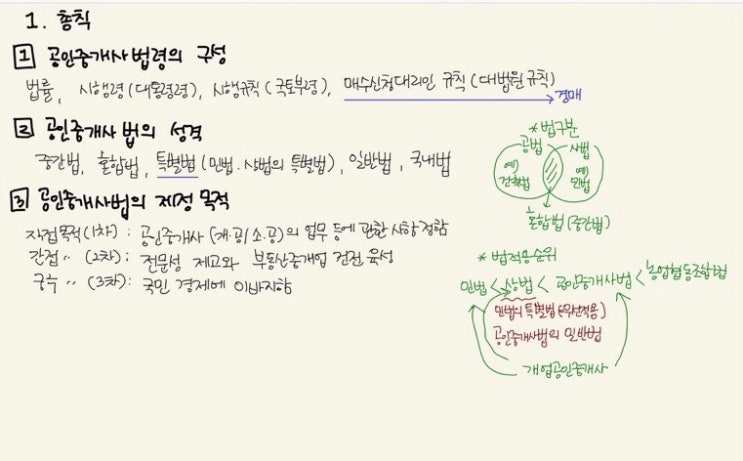 1. 총칙
1 공인중개사법령의 구성
법률, 시행령(대통령령), 시행규칙(국토부령), 매수신청대리인 규칙(대법원규칙)
경매
2 공인중개사법의 성격
중간법, 혼합법, 특별법(민법·상법의 특별법), 일반법, 국내법
*법구분
공법 사법
예) 건축법
예) 민법
혼합법(중간법)
3 공인중개사법의 제정 목적
직접목적(1차) : 공인중개사(개·공/소·공)의 업무 등에 관한 사항 정함
간접 〃 (2차) : 전문성 제고와 부동산중개업 건전 육성
궁극 〃 (3차) : 국민 경제에 이바지함
* 법적용순위
민법 < 상법 < 공인중개사법 < 농업협동조합법
민법의 특별법(우선적용)
공인중개사법의 일반법
개업공인중개사